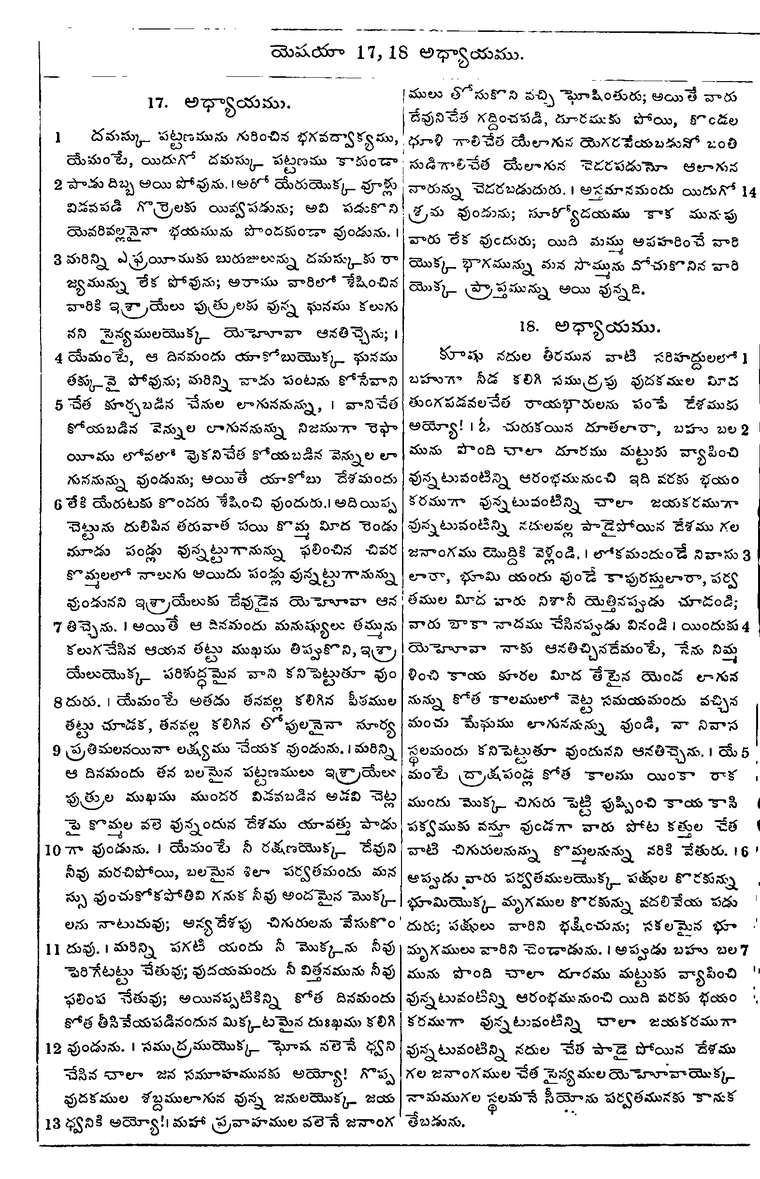 యెషయా 17, 18 అధ్యాయము.
17. అధ్యాయము.
1 దమస్కు పట్టణమును గురించిన భగవద్వాక్యము,
యేమంటే, యిదుగో దమస్కు పట్టణము కాకుండా
2 పాడు దిబ్బ అయి పోవును. । అరో యేరుయొక్క వూళ్లు
విడవపడి గొర్రెలకు యివ్వపడును; అవి పడుకొని
యెవరివల్లనైనా భయమును పొందకుండా వుండును. ।
3 మరిన్ని ఎఫ్రయీముకు బురుజులున్ను దమస్కుకు రా
జ్యమున్ను లేక పోవును; అరాము వారిలో శేషించిన
వారికి ఇశ్రాయేలు పుత్రులకు వున్న ఘనము కలుగు
నని సైన్యములయొక్క యెహోవా ఆనతిచ్చెను; ।
4 యేమంటే, ఆ దినమందు యాకోబుయొక్క ఘనము
తక్కువై పోవును; మరిన్ని వాడు పంటను కోసేవాని
5 చేత కూర్చబడిన చేనుల లాగుననున్ను, । వానిచేత
కోయబడిన వెన్నుల లాగుననున్ను నిజముగా రెఫా
యీము లోవలో వొకనిచేత కోయబడిన వెన్నుల లా
గుననున్ను వుండును; అయితే యాకోబు దేశమందు
6 తేకి యేరుటకు కొందరు శేషించి వుందురు. । అది యిప్ప
చెట్టును దులిపిన తరువాత పయి కొమ్మ మీద రెండు
మూడు పండ్లు వున్నట్టుగానున్ను ఫలించిన చివర
కొమ్మలలో నాలుగు అయిదు పండ్లు వున్నట్టుగానున్ను
వుండునని ఇశ్రాయేలుకు దేవుడైన యెహోవా ఆన
7 తిచ్చెను. । అయితే ఆ దినమందు మనుష్యులు తమ్మును
కలుగచేసిన ఆయన తట్టు ముఖము తిప్పుకొని, ఇశ్రా
యేలుయొక్క పరిశుద్ధమైన వాని కనిపెట్టుతూ వుం
8 దురు. । యేమంటే అతడు తనవల్ల కలిగిన పీఠముల
తట్టు చూడక, తనవల్ల కలిగిన తోపులనైనా సూర్య
9 ప్రతిమలనయినా లక్ష్యము చేయక వుండును. । మరిన్ని
ఆ దినమందు తన బలమైన పట్టణములు ఇశ్రాయేలు
పుత్రుల ముఖము ముందర విడవబడిన అడవి చెట్ల
పై కొమ్మల వలె వున్నందున దేశము యావత్తు పాడు
10 గా వుండును. । యేమంటే నీ రక్షణయొక్క దేవుని
నీవు మరచిపోయి, బలమైన శిలా పర్వతమందు మన
స్సు వుంచుకోకపోతివి గనుక నీవు అందమైన మొక్క
లను నాటుదువు; అన్యదేశపు చిగురులను వేసుకొం
11 దువు. । మరిన్ని పగటి యందు నీ మొక్కను నీవు
పెరిగేటట్టు చేతువు; వుదయమందు నీ విత్తనమును నీవు
ఫలింప చేతువు; అయినప్పటికిన్ని కోత దినమందు
కోత తీసివేయపడినందున మిక్కటమైన దుఃఖము కలిగి
12 వుండును. । సముద్రముయొక్క ఘోష వలెనే ధ్వని
చేసిన చాలా జన సమూహమునకు అయ్యో! గొప్ప
వుదకముల శబ్దములాగున వున్న జనులయొక్క జయ
13 ధ్వనికి అయ్యో! । మహా ప్రవాహముల వలెనే జనాంగ
ములు తోసుకొని వచ్చి ఘోషింతురు; అయితే వారు
దేవునిచేత గద్దించపడి, దూరముకు పోయి, కొండల
ధూళి గాలిచేత యేలాగున యెగరవేయబడునో బంతి
సుడిగాలిచేత యేలాగున చెదరపడునో ఆలాగున
వారున్ను చెదరబడుదురు. । అస్తమానమందు యిదుగో 14
శ్రమ వుండును; సూర్యోదయము కాక మునుపు
వారు లేక వుందురు; యిది మమ్ము అపహరించే వారి
యొక్క భాగమున్ను మన సొమ్మును దోచుకొనిన వారి
యొక్క ప్రాప్తమున్ను అయి వున్నది.
18. అధ్యాయము.
కూషు నదుల తీరమున వాటి సరిహద్దులలో 1
బహుగా నీడ కలిగి సముద్రపు వుదకముల మీద
తుంగపడవలచేత రాయభారులను పంపే దేశముకు
అయ్యో! । ఓ చురుకయిన దూతలారా, బహు బల 2
మును పొంది చాలా దూరము మట్టుకు వ్యాపించి
వున్నటువంటిన్ని ఆరంభమునుంచి ఇది వరకు భయం
కరముగా వున్నటువంటిన్ని చాలా జయకరముగా
వున్నటువంటిన్ని నదులవల్ల పాడైపోయిన దేశము గల
జనాంగము యొద్దికి వెళ్లండి. । లోకమందుండే నివాసు 3
లారా, భూమి యందు వుండే కాపురస్తులారా, పర్వ
తముల మీద వారు నిశానీ యెత్తినప్పుడు చూడండి;
వారు బాకా నాదము చేసినప్పుడు వినండి । యిందుకు 4
యెహోవా నాకు ఆనతిచ్చినదేమంటే, నేను నిమ్మ
ళించి కాయ కూరల మీద తేటైన యెండ లాగున
నున్ను కోత కాలములో వెట్ట సమయమందు వచ్చిన
మంచు మేఘము లాగుననున్ను వుండి, నా నివాస
స్థలమందు కనిపెట్టుతూ వుందునని ఆనతిచ్చెను. । యే 5
మంటే ద్రాక్షపండ్ల కోత కాలము యింకా రాక
ముందు మొక్క చిగురు పెట్టి పుష్పించి కాయ కాసి
పక్వముకు వస్తూ వుండగా వారు పోట కత్తుల చేత
వాటి చిగురులనున్ను కొమ్మలనున్ను నరికి వేతురు. । 6
అప్పుడు వారు పర్వతములయొక్క పక్షుల కొరకున్ను
భూమియొక్క మృగముల కొరకున్ను వదలివేయ పడు
దురు; పక్షులు వారిని భక్షించును; సకలమైన భూ
మృగములు వారిని చెండాడును. । అప్పుడు బహు బల 7
మును పొంది చాలా దూరము మట్టుకు వ్యాపించి
వున్నటువంటిన్ని ఆరంభమునుంచి యిది వరకు భయం
కరముగా వున్నటువంటిన్ని చాలా జయకరముగా
వున్నటువంటిన్ని నదుల చేత పాడై పోయిన దేశము
గల జనాంగముల చేత సైన్యముల యెహోవాయొక్క
నామముగల స్థలమనే సీయోను పర్వతమునకు కానుక
తేబడును.